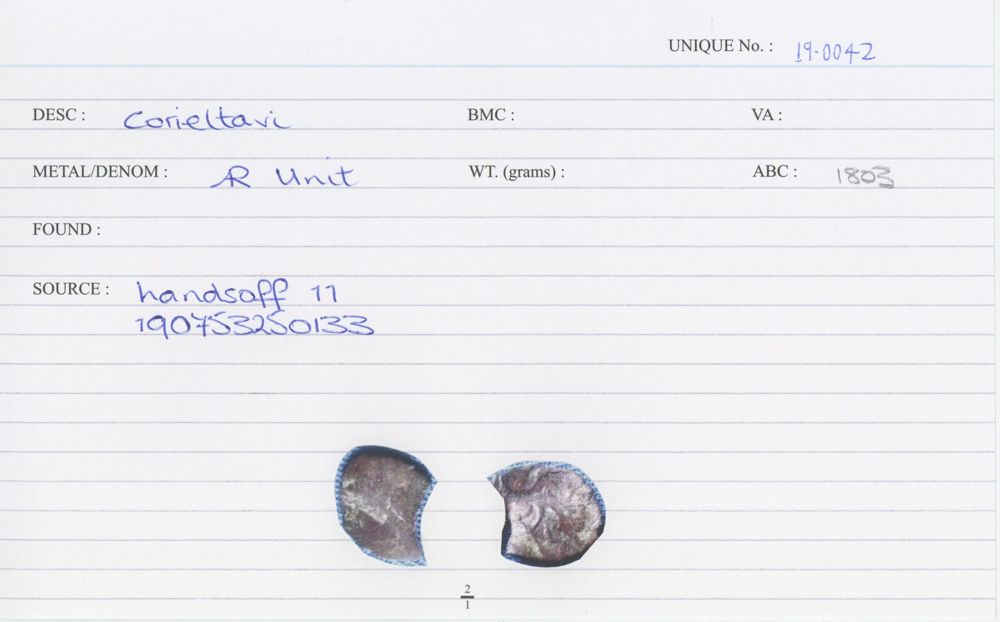 UNIQUE No. : 19.0042
DESC : Corieltavi BMC : VA :
METAL/DENOM : AR Unit WT. (grams) : ABC : 1803
FOUND :
SOURCE : handsoff 11
190753250133
2
1